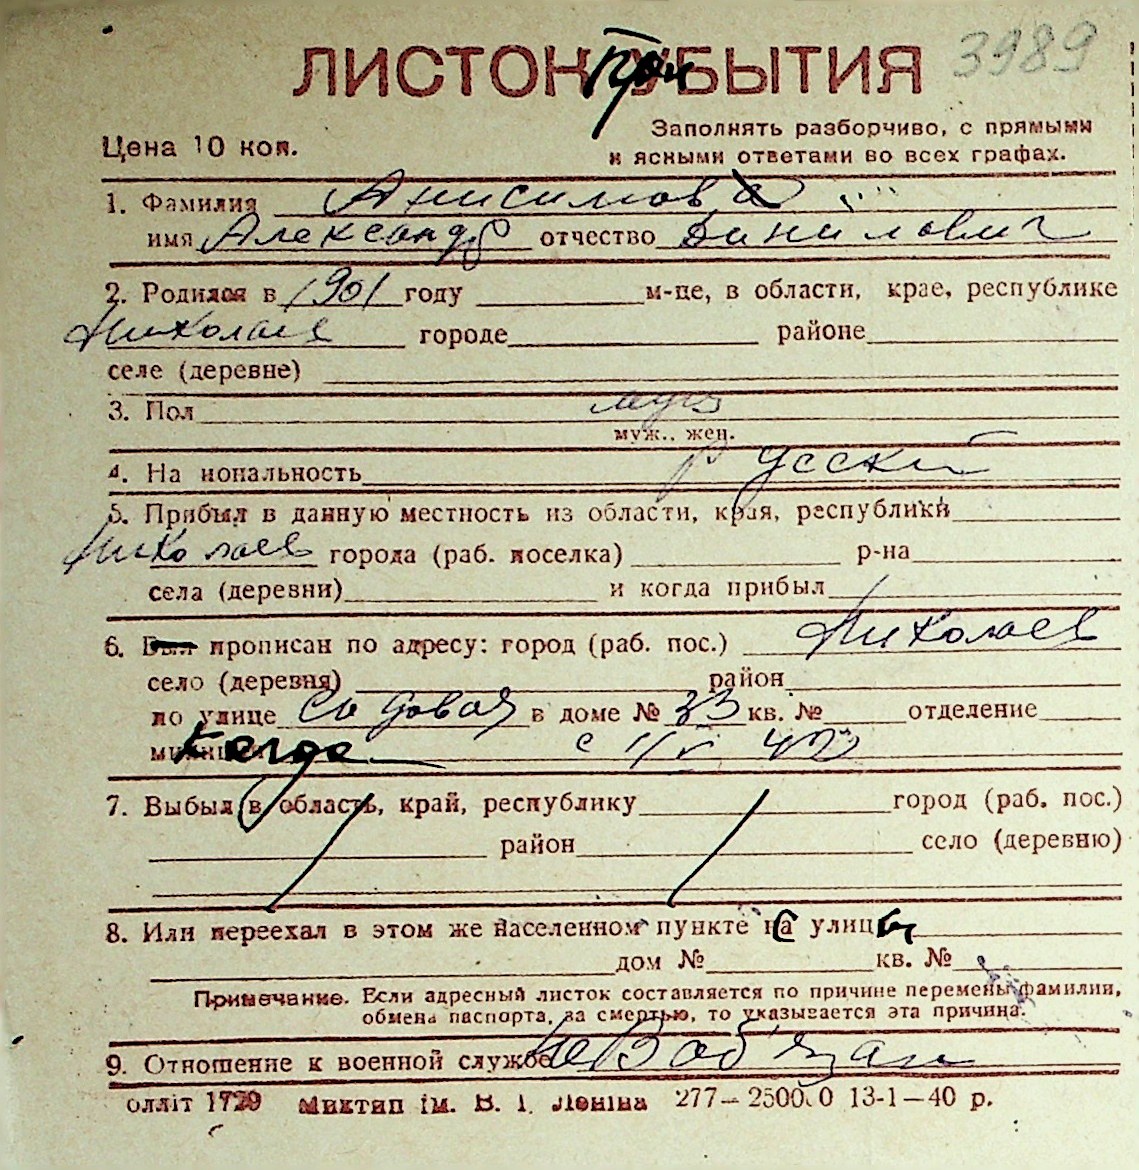 ЛИСТОК УБЫТИЯ 3989
При
Цена 10 коп.
Заполнять разборчиво, с прямыми
и ясными ответами во всех графах.
1. Фамилия Анисимов
имя Александр отчество Данилович
2. Родился в 1901 году м-це, в области, крае, республике
Николаев городе районе
селе (деревне)
3. Пол муж
муж., жен.
4. Национальность Русский
5. Прибыл в данную местность из области, края, республики
Николаев города (раб. поселка) р-на
села (деревни) и когда прибыл
6. Был прописан по адресу: город (раб. пос.) Николаев
село (деревня) район
по улице Садовая в доме № 33 кв. № отделение
милиции когда
7. Выбыл в область, край, республику город (раб. пос.)
район село (деревню)
8. Или переехал в этом же населенном пункте с улицы
дом № кв. №
Примечание. Если адресный листок составляется по причине перемены фамилии,
обмена паспорта, за смертью, то указывается эта причина.
9. Отношение к военной службе Невоб'язан
олліт 1729 Миктип ім. В. І. Леніна 277—25000 13-1—40 р.